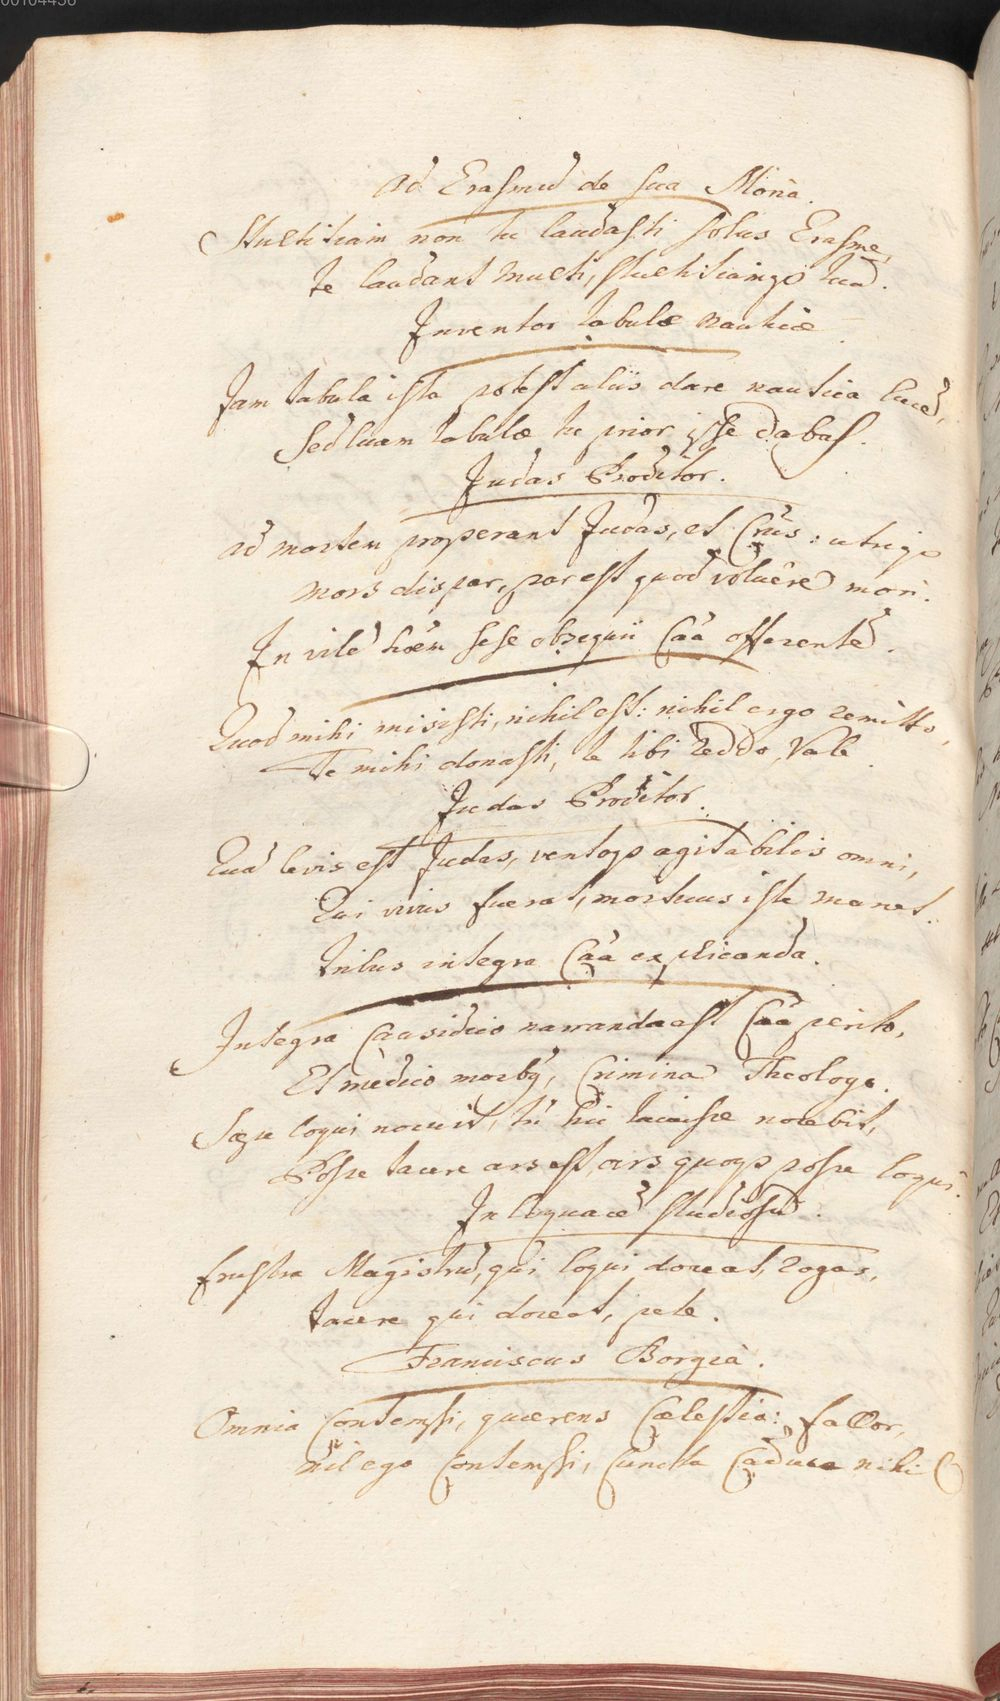 00104436
Ad Erasmũ de sua Moria.
Stultitiam non tu laudasti solus Erasme,
te laudant multi, stultitiamq3 tuã.
Inventor tabulæ nauticæ
Jam tabula ista potest aliis dare nautica lucẽ,
Sed lucem tabulæ tu prior ipse dabas.
Judas Proditor.
Ad mortem properant Judas, et Chrûs: utriq3
mors dispar, par est quod voluêre mori.
In vilẽ hoêm sese obsequii Caâ offerentẽ.
Quod mihi misisti, nihil est: nihil ergo remitto,
Te mihi donasti, te tibi reddo, Vale.
Judas Proditor.
Quã levis est Judas, ventoq3 agitabilis omni,
Qui vivus fuerat, mortuus iste manet.
Intus integra Caâ explicanda.
Integra Causidico narranda est Caâ perito,
Et medico morbꝰ, Crimina Theologo.
Sæpe loqui nocuit, tñ hic tacuisse nocebit,
Posse tacere ars est, ars quoq3 posse loqui.
In loquacẽ studiosũ.
frustra Magistrũ, qui loqui doceat, rogas,
tacere qui doceat, pete.
Franciscus Borgia.
Omnia Contempsi, quærens Cælestia: fallor,
nil ego Contempsi, Cuncta Caduca nihil